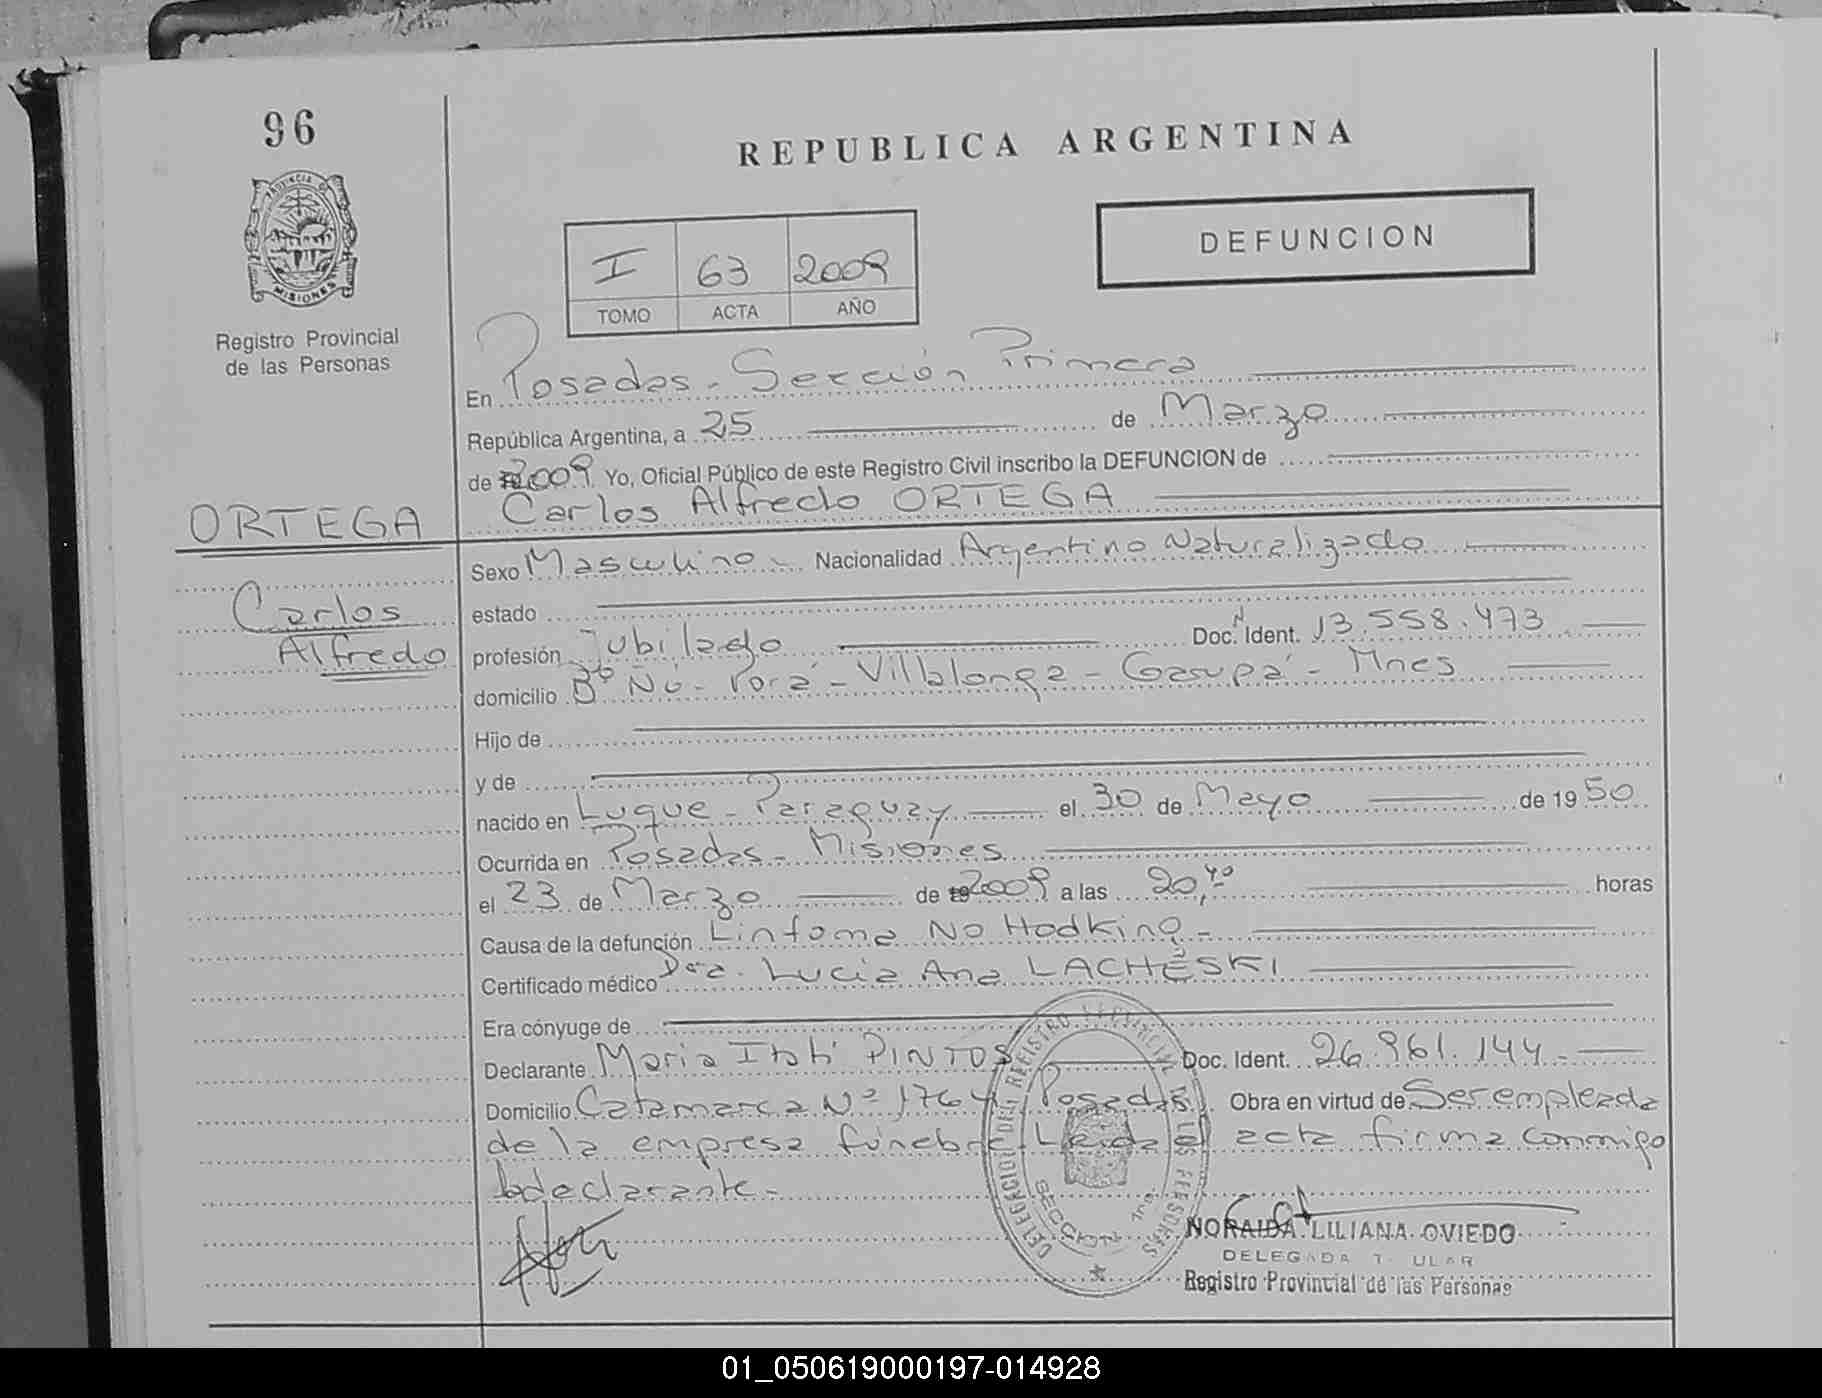 96
REPUBLICA ARGENTINA
PROVINCIA DE MISIONES
DEFUNCION
I 63 2009
TOMO ACTA AÑO
Registro Provincial
de las Personas
En Posadas - Sección Primera
República Argentina, a 25 de Marzo
de 2009 Yo, Oficial Público de este Registro Civil inscribo la DEFUNCION de
ORTEGA Carlos Alfredo ORTEGA
Sexo Masculino Nacionalidad Argentino Naturalizado
Carlos estado
Alfredo profesión Jubilado Doc. Ident. 13.558.473
domicilio Bº Nú - Porá - Villalonga - Garupá - Mnes
Hijo de
y de
nacido en Luque - Paraguay el 30 de Mayo de 19 50
Ocurrida en Posadas - Misiones
el 23 de Marzo de 2009 a las 20,40 horas
Causa de la defunción Linfoma No Hodking -
Certificado médico Dra. Lucia Ana LACHESKI
Era cónyuge de
Declarante Maria Itatí PINTOS Doc. Ident. 26.961.144 -
Domicilio Catamarca Nº 1764 Posadas Obra en virtud de Ser empleada
de la empresa fúnebre. Leida el acta firma conmigo
la declarante -
DELEGACION DEL REGISTRO PROVINCIAL DE LAS PERSONAS
SECCION 1ra
NORAIDA LILIANA OVIEDO
DELEGADA TITULAR
Registro Provincial de las Personas
01_050619000197-014928